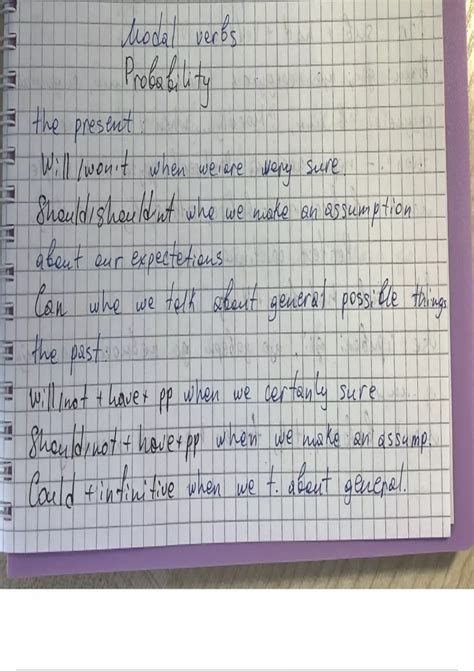 Modal verbs
Probability
the present:
Will/won't when we are very sure
Should/shouldn't whe we make an assumption
about our expectetions
Can whe we talk about general possible things
the past:
Will/not + have + pp when we certanly sure
Should/not + have + pp when we make an assump.
Could + infinitive when we t. about general.